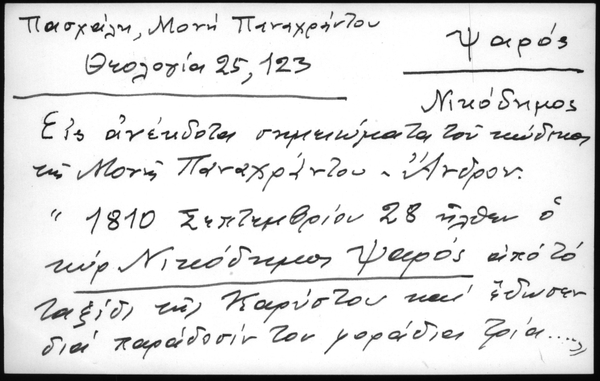 Πασχάλη, Μονή Παναχράντου
Θεολογία 25, 123
Ψαρός
Νικόδημος
Εἰς ἀνέκδοτα σημειώματα τοῦ κώδικος
τῆς Μονῆς Παναχράντου - Ἄνδρου.
" 1810 Σεπτεμβρίου 28 ἦλθεν ὁ
κύρ Νικόδημος Ψαρός ἀπό τό
ταξίδι τῆς Καρύστου καί ἔδωσεν
διά παράδοσίν του γοράδια τρία....."